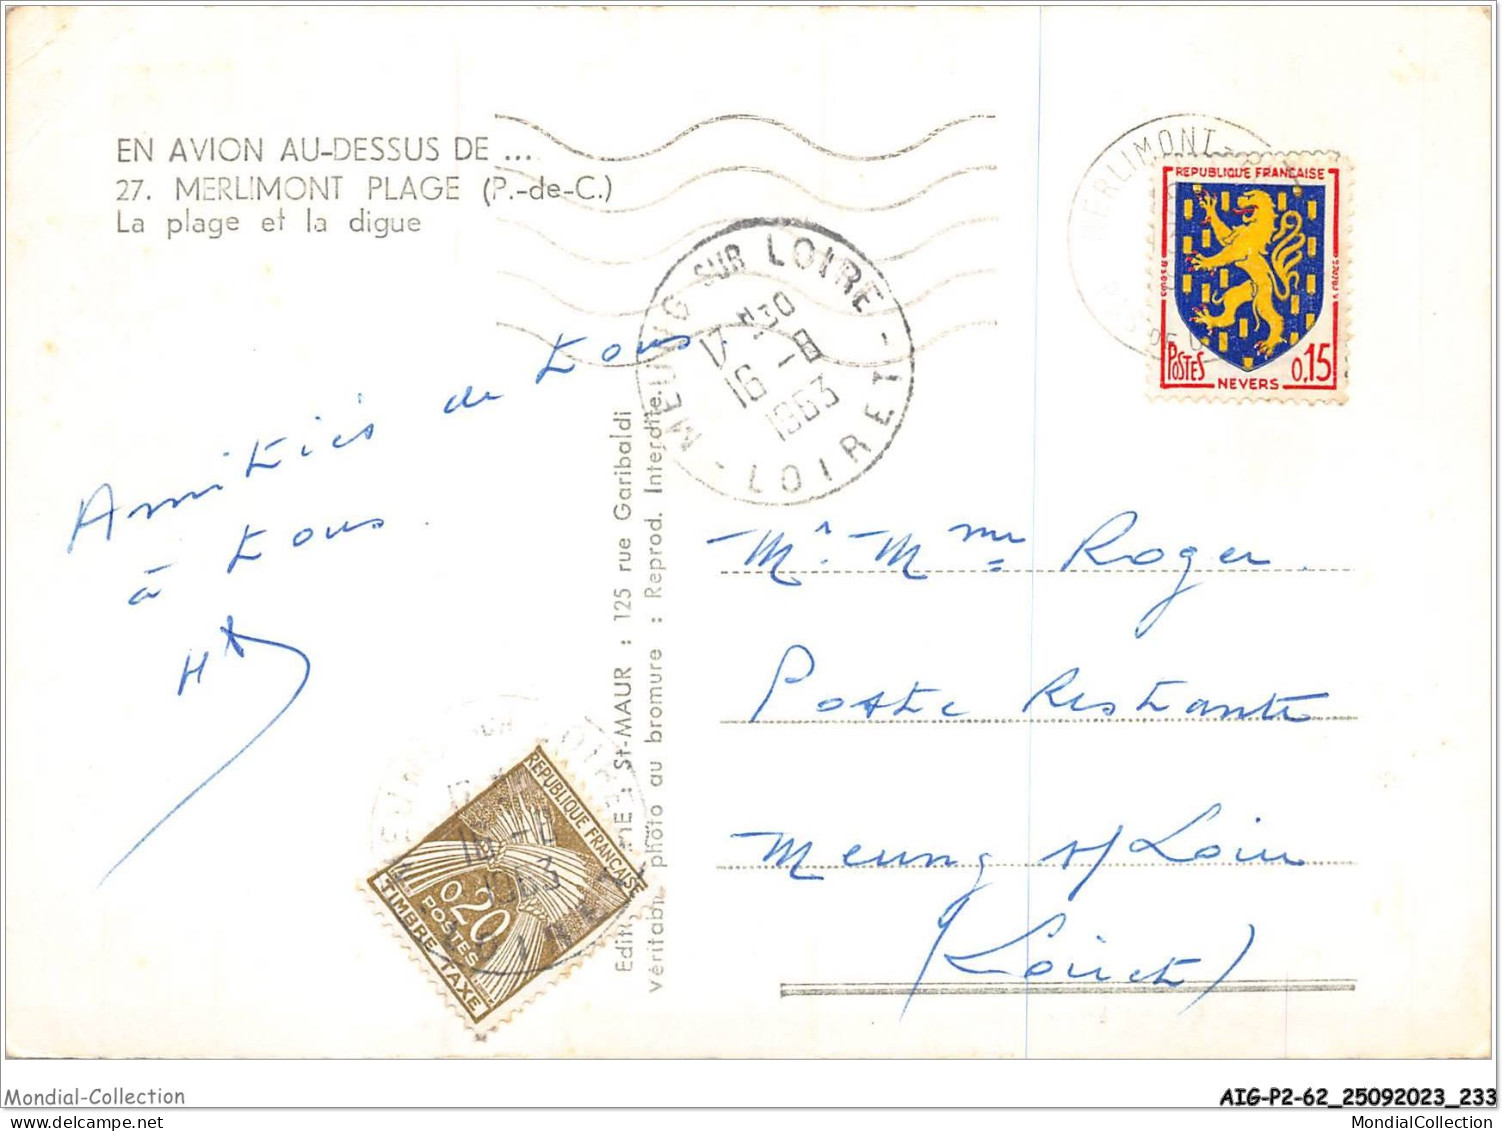 EN AVION AU-DESSUS DE ...
27. MERLIMONT PLAGE (P.-de-C.)
La plage et la digue
MERLIMONT
REPUBLIQUE FRANÇAISE
POSTES
NEVERS
0,15
MEUNG SUR LOIRE - LOIRET -
17 H30
16 - 8
1963
Amitiés de tous
à tous.
Mr. Mme Roger.
Poste Restante
Meung s/ Loire
(Loiret)
ST-MAUR : 125 rue Garibaldi
photo au bromure : Reprod. Interdite.
REPUBLIQUE FRANÇAISE
0,20
POSTES
TIMBRE TAXE
16 - 8
1963
Mondial-Collection
AIG-P2-62_25092023_233
MondialCollection